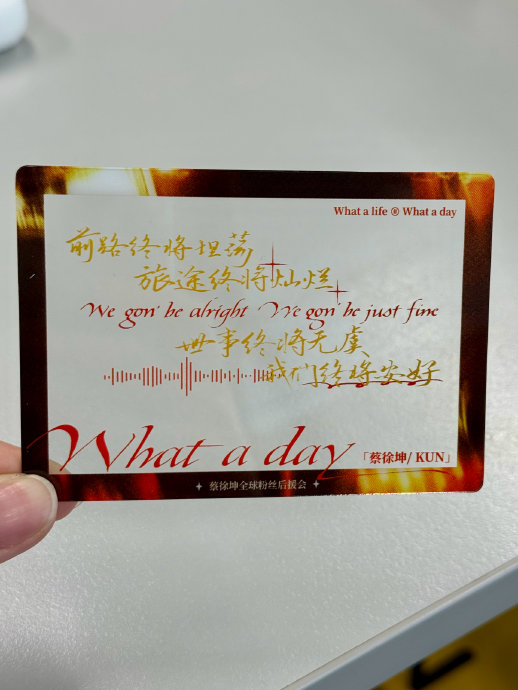 What a life ® What a day
前路终将坦荡
旅途终将灿烂
We gon' be alright We gon' be just fine
世事终将无虞
我们终将安好
What a day 「蔡徐坤/ KUN」
蔡徐坤全球粉丝后援会